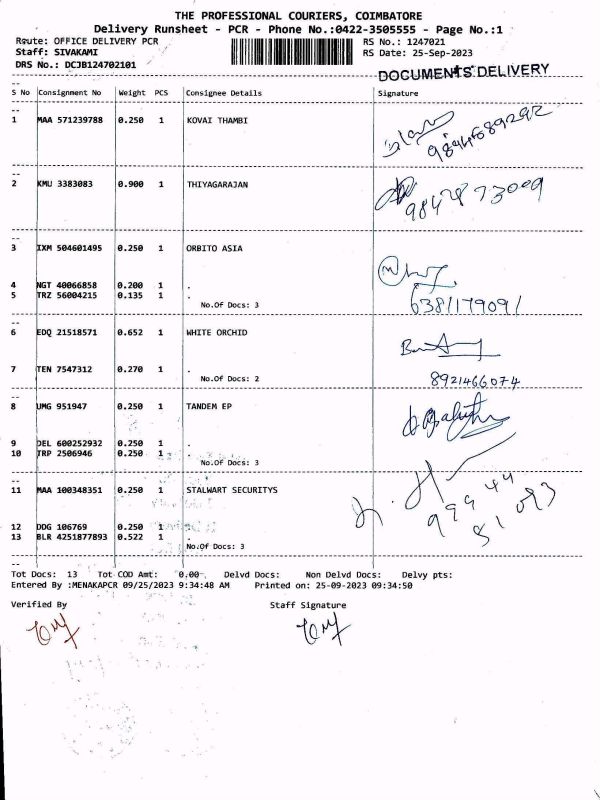 THE PROFESSIONAL COURIERS, COIMBATORE
Delivery Runsheet - PCR - Phone No.:0422-3505555 - Page No.:1
Route: OFFICE DELIVERY PCR RS No.: 1247021
Staff: SIVAKAMI RS Date: 25-Sep-2023
DRS No.: DCJB124702101
DOCUMENTS DELIVERY
S No Consignment No Weight PCS Consignee Details Signature
1 MAA 571239788 0.250 1 KOVAI THAMBI
2 KMU 3383083 0.900 1 THIYAGARAJAN
9842873009
3 IXM 504601495 0.250 1 ORBITO ASIA
4 NGT 40066858 0.200 1 .
5 TRZ 56004215 0.135 1 .
No.Of Docs: 3
6381179091
6 EDQ 21518571 0.652 1 WHITE ORCHID
7 TEN 7547312 0.270 1 .
No.Of Docs: 2
8921466074
8 UMG 951947 0.250 1 TANDEM EP
9 DEL 600252932 0.250 1 .
10 TRP 2506946 0.250 1 .
No.Of Docs: 3
11 MAA 100348351 0.250 1 STALWART SECURITYS
99944
81093
12 DDG 106769 0.250 1 .
13 BLR 4251877893 0.522 1 .
No.Of Docs: 3
Tot Docs: 13 Tot COD Amt: 0.00 Delvd Docs: Non Delvd Docs: Delvy pts:
Entered By :MENAKAPCR 09/25/2023 9:34:48 AM Printed on: 25-09-2023 09:34:50
Verified By Staff Signature